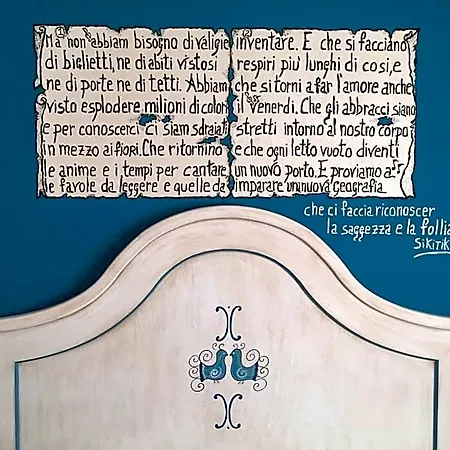 Ma non abbiam bisogno di valigie
di biglietti, ne di abiti vistosi
ne di porte ne di tetti. Abbiam
visto esplodere milioni di colori
e per conoscerci ci siam sdraiati
in mezzo ai fiori. Che ritornino
le anime e i tempi per cantare
e favole da leggere e quelle da
inventare. E che si facciano
respiri più lunghi di così, e
che si torni a far l'amore anche
il Venerdì. Che gli abbracci siano
stretti intorno al nostro corpo
e che ogni letto vuoto diventi
un nuovo porto. E proviamo a
imparare una nuova geografia
che ci faccia riconoscer
la saggezza e la follia
SIKITIKI